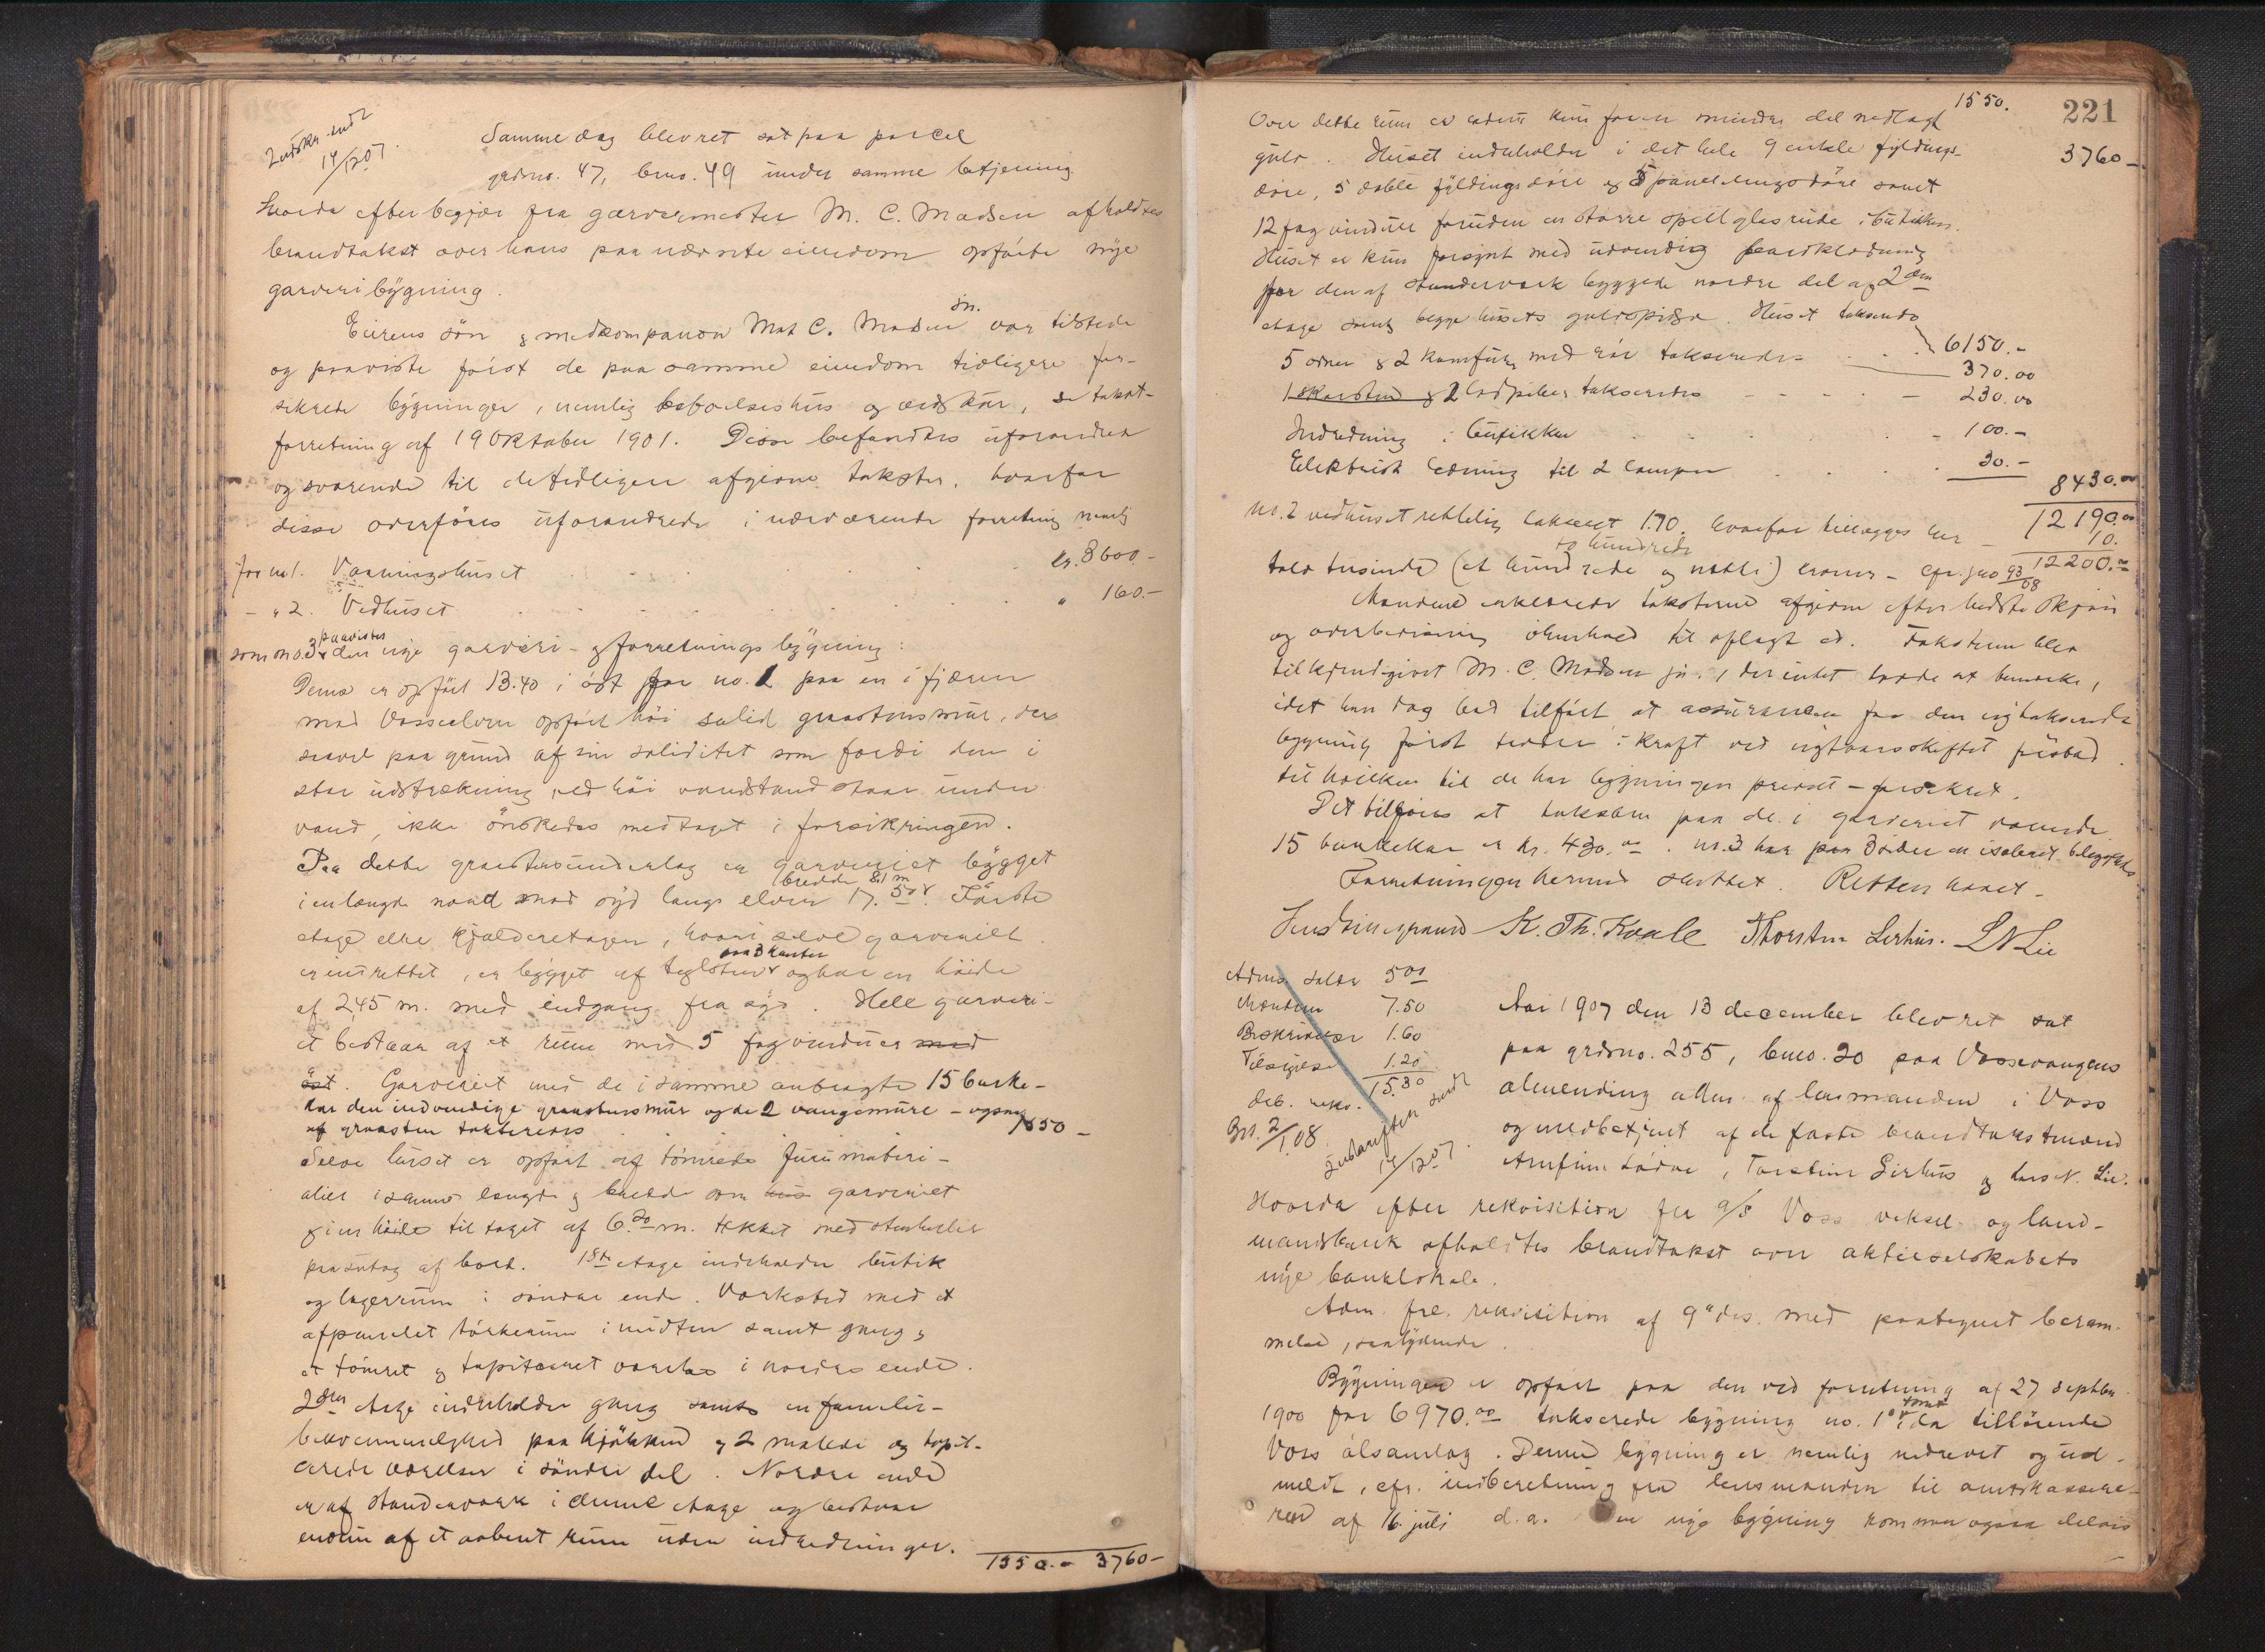 Indskr. sendt
14/12 07.
Samme dag blev ret sat paa parcel
grdsno. 47, bruno. 49 under samme betjening
Hvorda efter begjær fra garvermester M. C. Madsen afholdtes
brandtakst over hans paa nævnte eiendom opførte nye
garveribygning.
Eierens søn & medkompanon Mat C. Madsen jn. var tilstede
og paaviste først de paa samme eiendom tidligere for-
sikrede bygninger, nemlig beboelseshus og vedskur, se takst-
forretning af 19 Oktober 1901. Disse befandtes uforandret
og svarende til de tidligere afgivne takster, hvorfor
disse overføres uforandrede i nærværende forretning nemlig
for no 1. Vaaningshuset kr. 3600.-
- " 2. Vedhuset " 160.-
som no. 3 paavistes den nye garveri- & forretningsbygning:
Denne er opført 13.40 i øst for no. 1 paa en i fjæren
mod Vosseelven opført høi solid graastensmur, der
saavel paa grund af sin soliditet som fordi den i
stor udstrækning ved høi vandstand staar under
vand, ikke ønskedes medtaget i forsikringen.
Paa dette graastensunderlag er garveriet bygget
i en længde nord mod syd langs elven 17.50 bredde 8.1 m. Første
etage eller kjælderetagen, hvori selve garveriet
er indrettet, er bygget af teglsten paa 3 kanter og har en høide
af 2,45 m. med indgang fra syd. Hele garveri-
et bestaar af et rum med 5 fag vinduer mod
øst. Garveriet med de i samme anbragte 15 barke-
kar den indvendige graastensmur og de 2 vangemure - ogsaa
af graasten taxteredes 1550 -
Selve huset er opført af tømrede furumateri-
alier i samme længde & bredde som garveriet
& i en høide til taget af 6.20 m. tekket med stenheller
paa sutag af bord. 1ste etage indeholder butik
og lagerrum i søndre ende. Værksted med et
afpanelet tørkerum i midten samt gang &
et tømret & tapitseret værelse i nordre ende.
2den etage indeholder gang samt en familie-
bekvemmelighed paa kjøkken & 2 malede og tapit-
serede værelser i søndre del. Nordre ende
er af standerværk i denne etage og bestaar
endnu af et aabent rum uden indredninger.
1550.- 3760-
221
1550.
3760-
Over dette rum er endnu kun for en mindre del nedlagt
gulv. Huset indeholder i det hele 9 enkle fyldings-
døre, 5 doble fyldingsdøre og 5 paneldøre samt
12 fag vinduer foruden en større speilglasrude i butikken.
Huset er kun forsynt med udvendig bordklædning
for den af standerværk byggede nordre del af 2den
etage samt begge husets gulvspidser. Huset takseredes
6150.-
5 ovner & 2 komfurer med rør takseredes 370.00
1 skorsten & 2 ladpiber takseredes 230.00
Indredning i butikken 100.-
Elektrisk ledning til 2 lamper 30.-
8430.00
12190.00
No. 2 vedhuset rettelig takseret 170. hvorfor tillægges her 10.
12200.00
tolv tusinde (et hundrede og nitti) to hundrede kroner - cfr. jno 93/08
Mændene erklærede taksterne afgivne efter bedste skjøn
og overbevisning i henhold til aflagt ed. Taksten blev
tilkjendegivet M. C. Madsen jn., der intet havde at bemærke,
idet han dog bad tilført at assurancen for den nytakserede
bygning først træder i kraft ved nytaarsskiftet førstk.
til hvilken tid de har bygningen privat-forsikret.
Det tilføies at taksten paa de i garveriet værende
15 barkekar er kr. 430.00. No. 3 har paa 3 sider en isoleret beliggenhed
Forretningen hermed sluttet. Retten hævet.
K. Th. Kvale Thorstein Lirhus. L N Lie
Adms. salær 5.00
Mændene 7.50
Beskrivelse 1.60
Tilsigelse 1.20
15.30
Deb. reks.
Bet. 2/1 08.
Indskriften sendt
14/12 07.
Aar 1907 den 13 december blev ret sat
paa grdsno. 255, bruno. 20 paa Vossevangens
almending adm. af lensmanden i Voss
og medbetjent af de faste brandtakstmænd
Arnfinn Lødve, Torstein Lirhus & Lars N. Lie.
Hvorda efter rekvisition fra A/S Voss veksel- og land-
mandsbank afholdtes brandtakst over aktieselskabets
nye banklokale.
Adm. frl. rekvisition af 9de ds. med paategnet beram-
melse, saalydende.
Bygningen er opført paa den ved forretning af 27 septbr.
1900 for 6970.00 takserede bygning no. 1 tomt i da tilhørende
Voss ølsamlag. Denne bygning er nemlig nedrevet og ud-
meldt, cfr. indberetning fra lensmanden til amtskassere-
ren af 16. juli d. a. Den nye bygning kommer ogsaa delvis